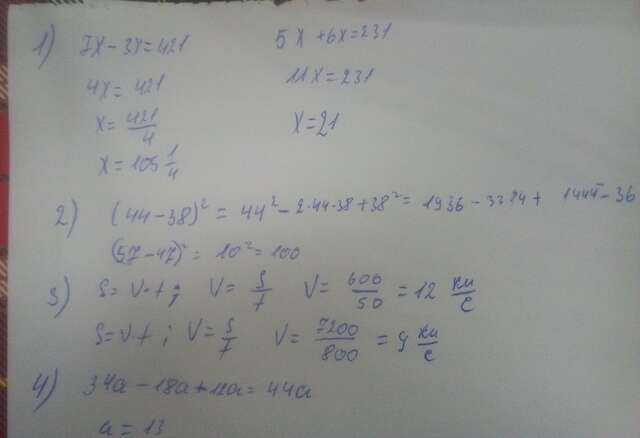 1) 7x - 3x = 421
4x = 421
x = 421/4
x = 105 1/4
5x + 6x = 231
11x = 231
x = 21
2) (44-38)² = 44² - 2·44·38 + 38² = 1936 - 3284 + 1444 - 36
(57-47)² = 10² = 100
3) S = V·t ; V = S/t V = 600/50 = 12 км/с
S = Vt ; V = S/t V = 7200/800 = 9 км/с
4) 34a - 18a + 12a = 44a
a = 13